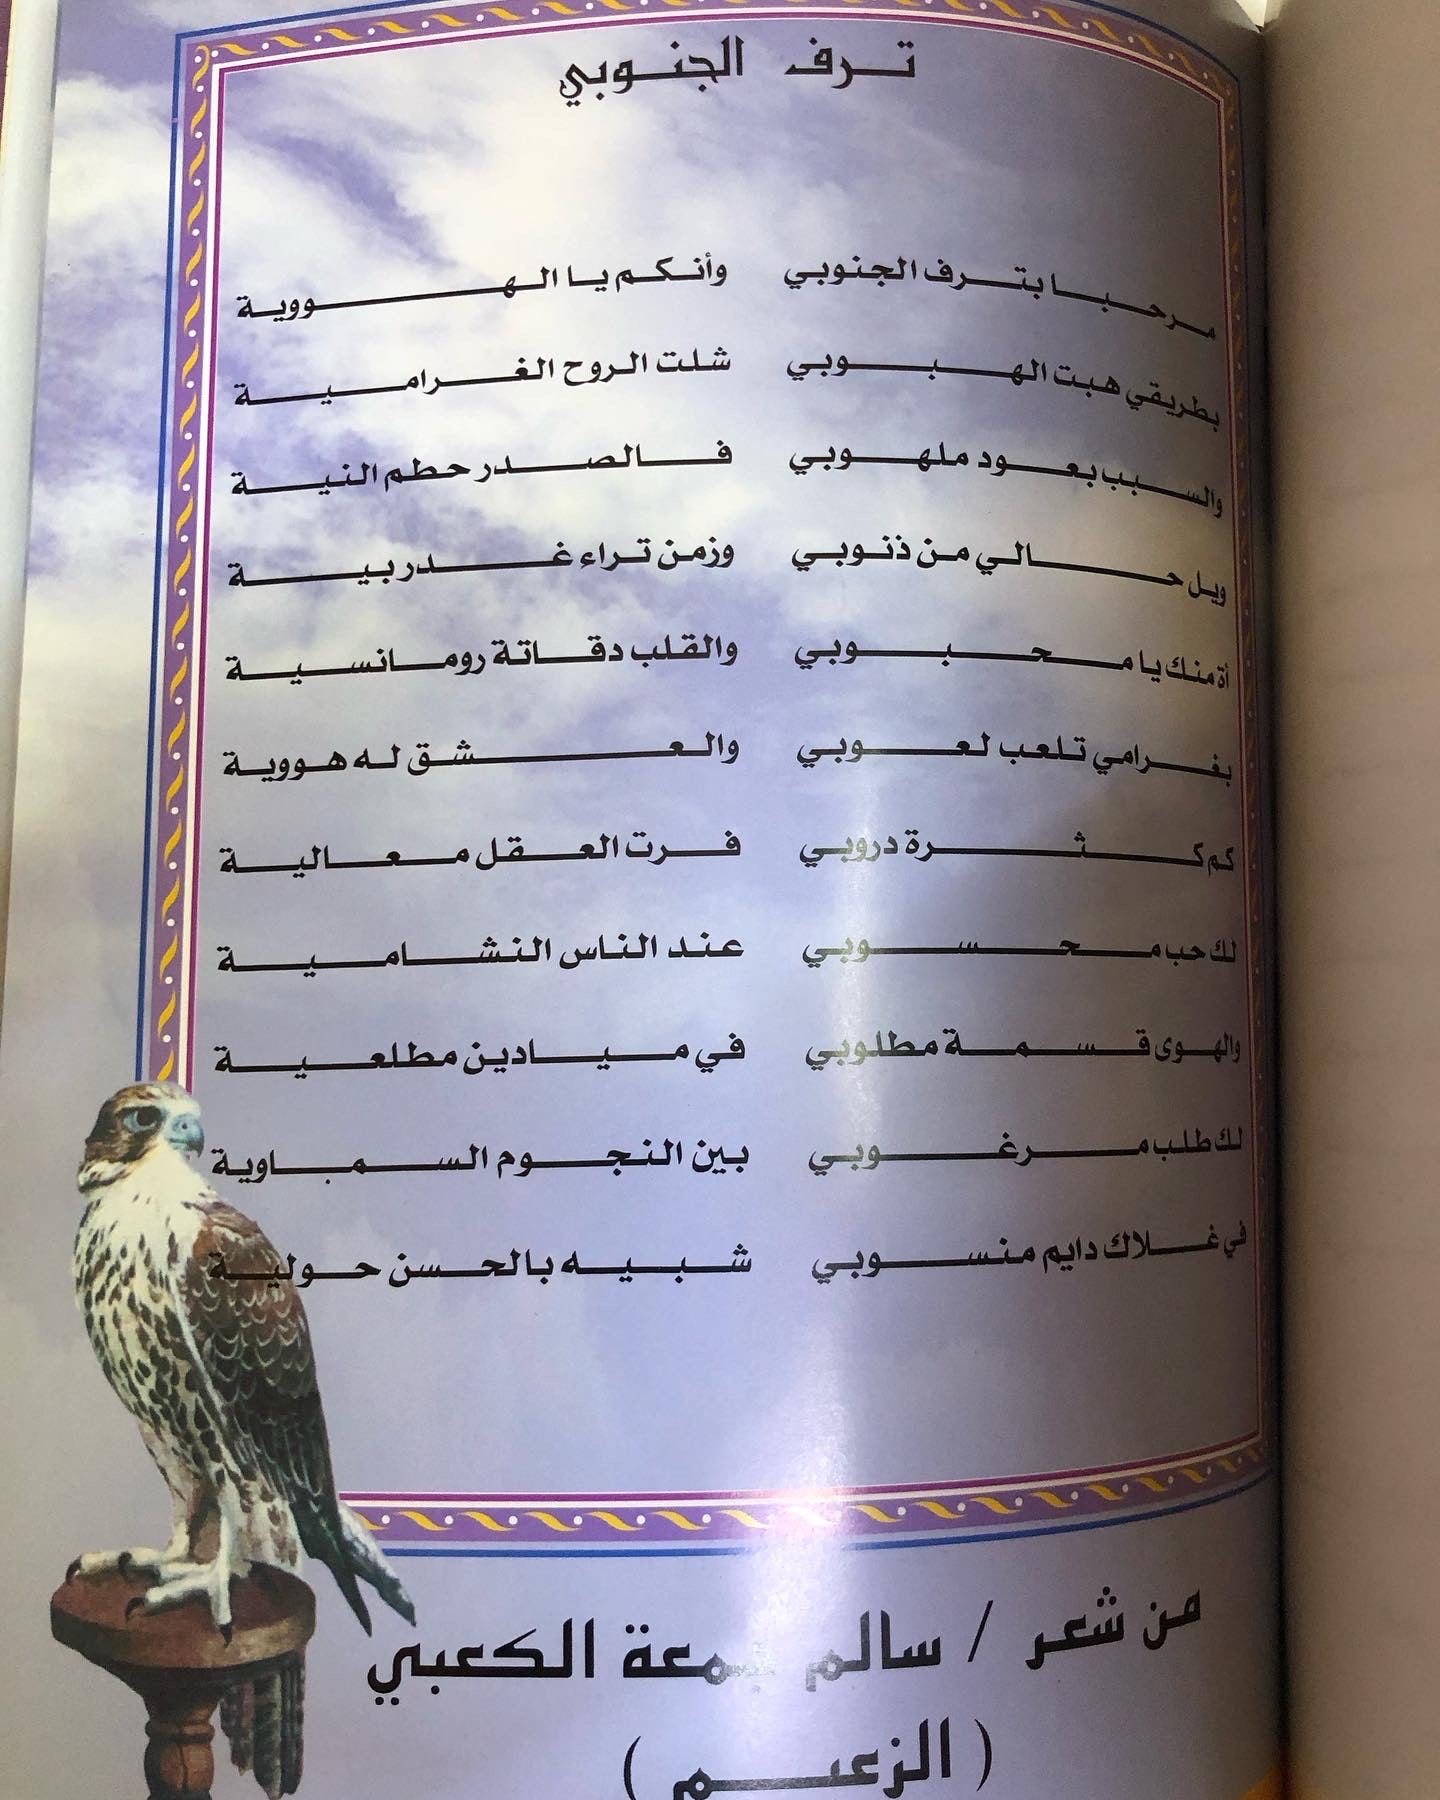 ترف الجنوبي
مرحبا بترف الجنوبي وأنكم يا الهووية
بطريقي هبت الهبوبي شلت الروح الغرامية
والسبب بعود ملهوبي فالصدر حطم النية
ويل حالي من ذنوبي وزمن تراء غدر بية
أة منك يا محبوبي والقلب دقاتة رومانسية
بغرامي تلعب لعوبي والعشق له هووية
كم كثرة دروبي فرت العقل معالية
لك حب محسوبي عند الناس النشامية
والهوى قسمة مطلوبي في ميادين مطلعية
لك طلب مرغوبي بين النجوم السماوية
في غلاك دايم منسوبي شبيه بالحسن حولية
من شعر / سالم جمعة الكعبي
( الزعيم )